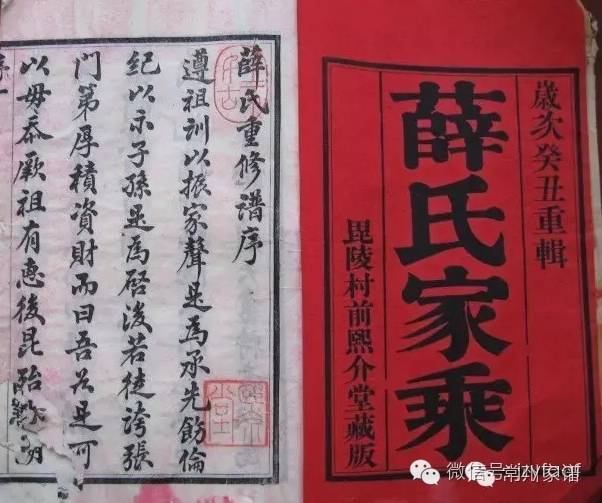 歲次癸丑重輯
薛氏家乘
毘陵村前熙介堂藏版
薛氏重修譜序
遵祖訓以振家聲是為承先飭倫
紀以示子孫是為啓後若徒誇張
門第厚積資財而曰吾於是可
以毋忝厥祖有惠後昆殆
序一
微信号
常州家谱